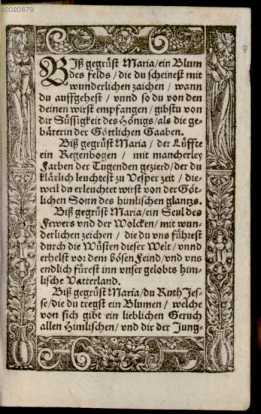 Biß gegrüst Maria/ein Blum
des felds / die du scheinest mit
wunderlichen zaichen / wann
du auffgehest / vnnd so du von den
deinen wirst empfangen / gibstu von
dir Süssigkeit des Hönigs/als die ge-
bärerin der Götlichen Gaaben.
Biß gegrüst Maria / der Lüffte
ein Regenbogen / mit mancherley
Farben der Tugenden gezierd/der du
klärlich leuchtest zu Vesper zeit / die-
weil du erleuchtet wirst von der Göt-
lichen Sonn des himlischen glantzs.
Biß gegrüst Maria/ein Seul des
Fewers vnd der Wolcken/ mit wun-
derlichen zaichen / die du vns führest
durch die Wüsten dieser Welt / vnnd
erhelst vor dem bösen Feind/vnd vns
endlich fürest inn vnser gelobts him-
lische Vatterland.
Biß gegrüst Maria/du Ruth Jes-
se/die du tregst ein Blumen / welche
von sich gibt ein lieblichen Geruch
allen Himlischen/ vnd dir der Jung-